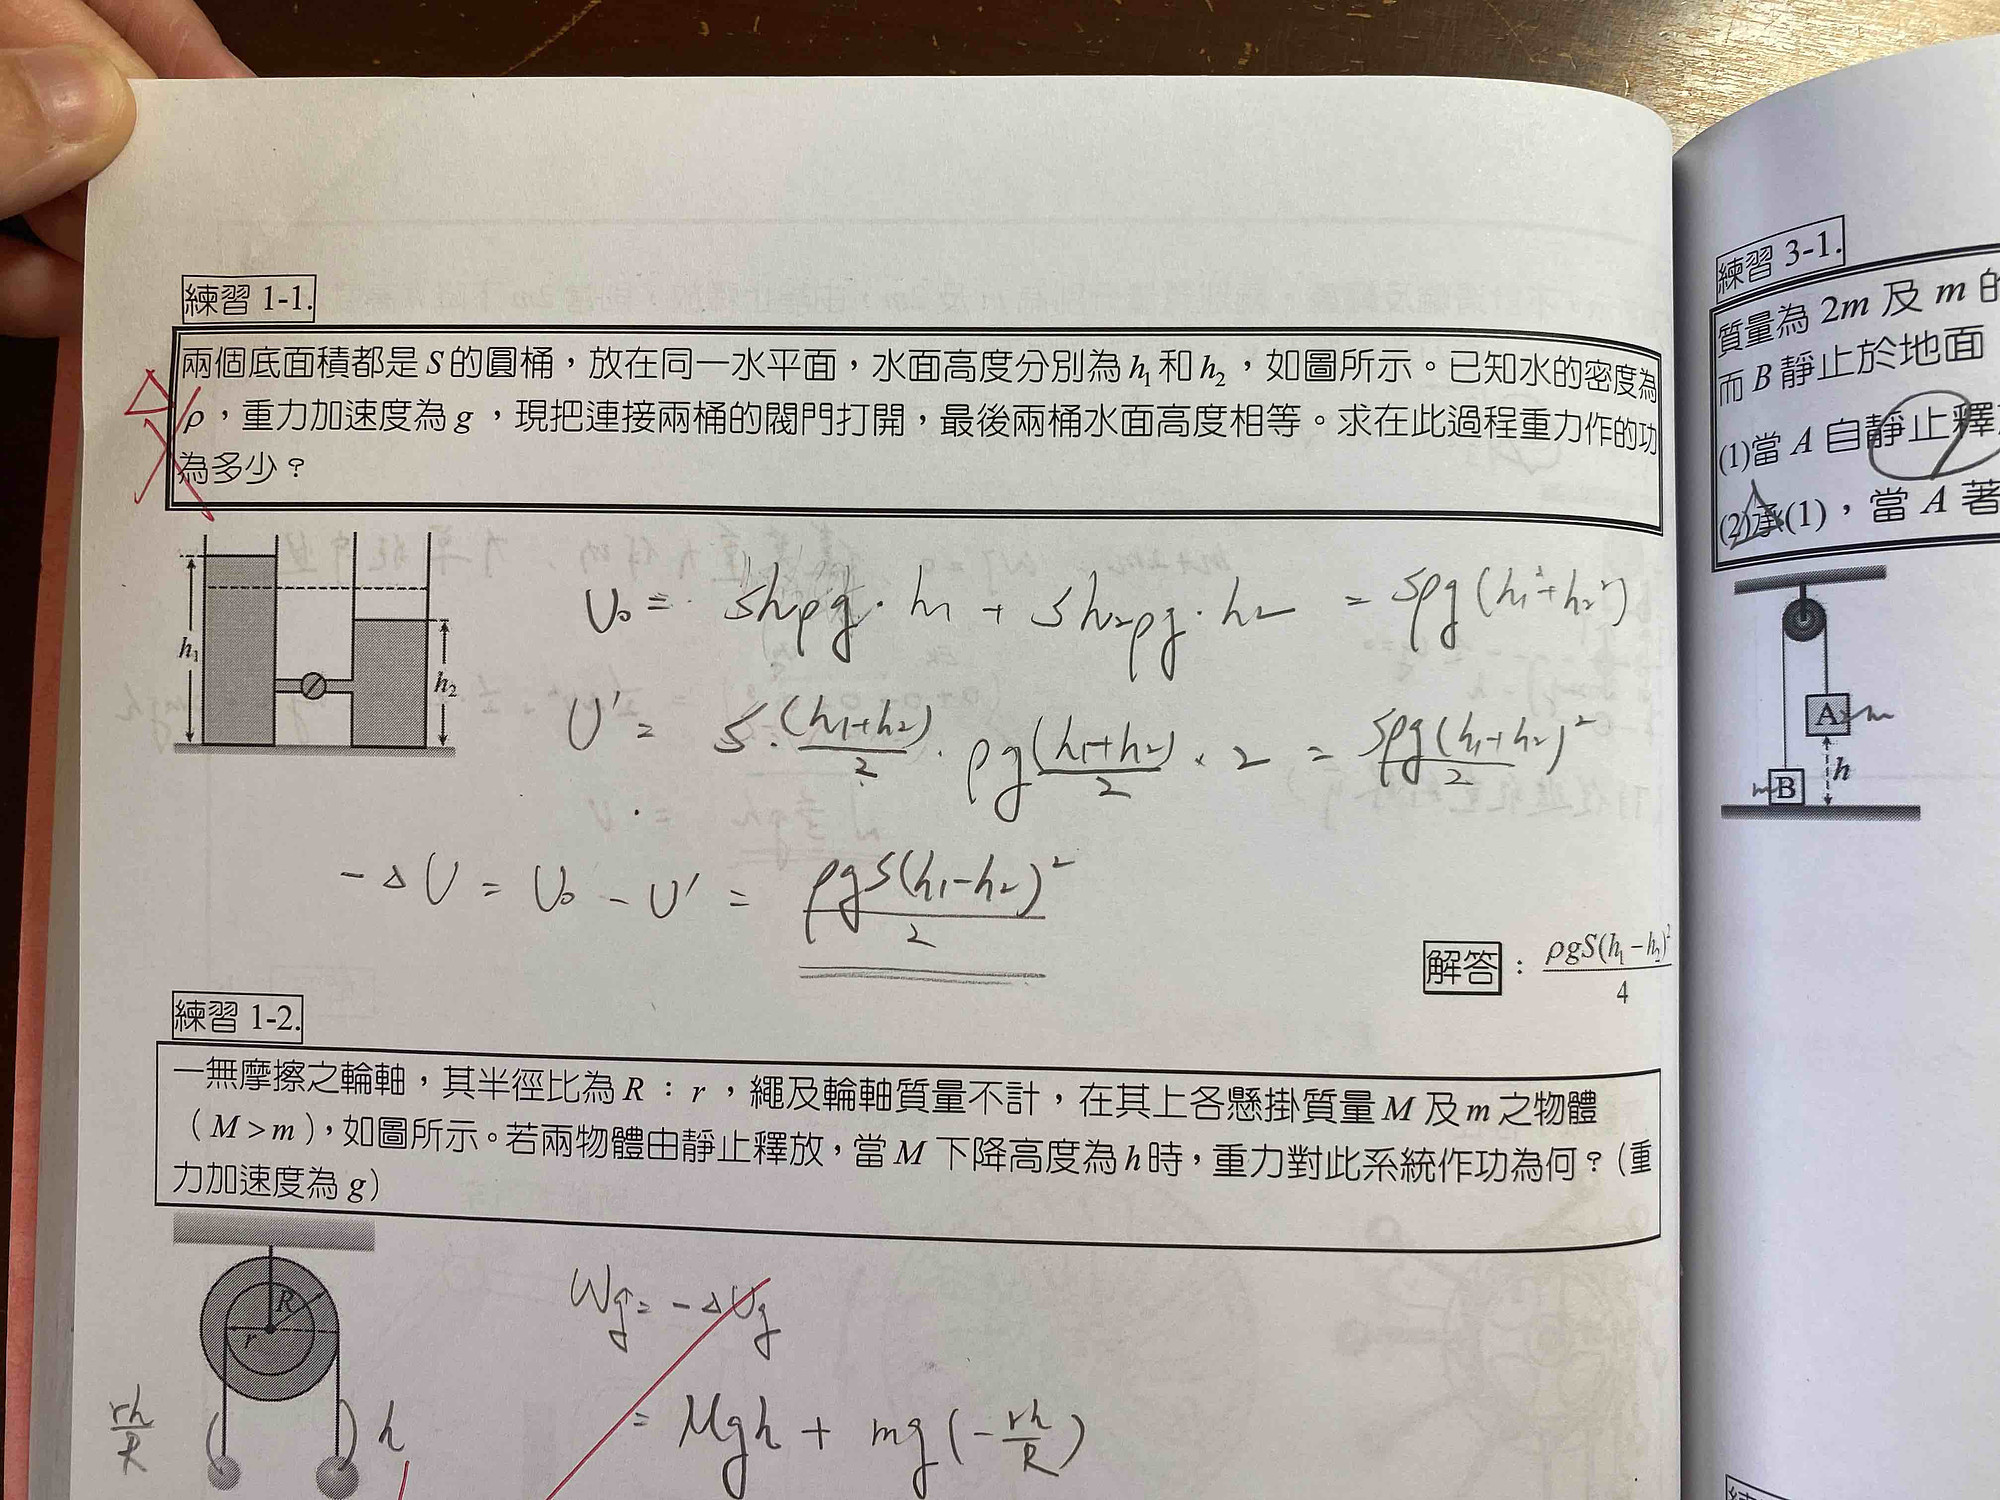 練習 1-1.
兩個底面積都是 S 的圓桶，放在同一水平面，水面高度分別為 h₁ 和 h₂，如圖所示。已知水的密度為
ρ，重力加速度為 g，現把連接兩桶的閥門打開，最後兩桶水面高度相等。求在此過程重力作的功
為多少？
h₁
h₂
U₀ = Sh₁ρg·h₁ + Sh₂ρg·h₂ = Sρg(h₁²+h₂²)
U' = S·(h₁+h₂)/2·ρg(h₁+h₂)/2 × 2 = Sρg(h₁+h₂)²/2
-ΔU = U₀ - U' = ρgS(h₁-h₂)²/2
解答：ρgS(h₁-h₂)²/4
練習 1-2.
一無摩擦之輪軸，其半徑比為 R：r，繩及輪軸質量不計，在其上各懸掛質量 M 及 m 之物體
（M>m），如圖所示。若兩物體由靜止釋放，當 M 下降高度為 h 時，重力對此系統作功為何？（重
力加速度為 g）
R
r
rh/R
h
Wg = -ΔUg
= Mgh + mg(-rh/R)
練習 3-1.
質量為 2m 及 m 的
而 B 靜止於地面
(1)當 A 自靜止釋
(2)承(1)，當 A 著
A
m
h
m
B